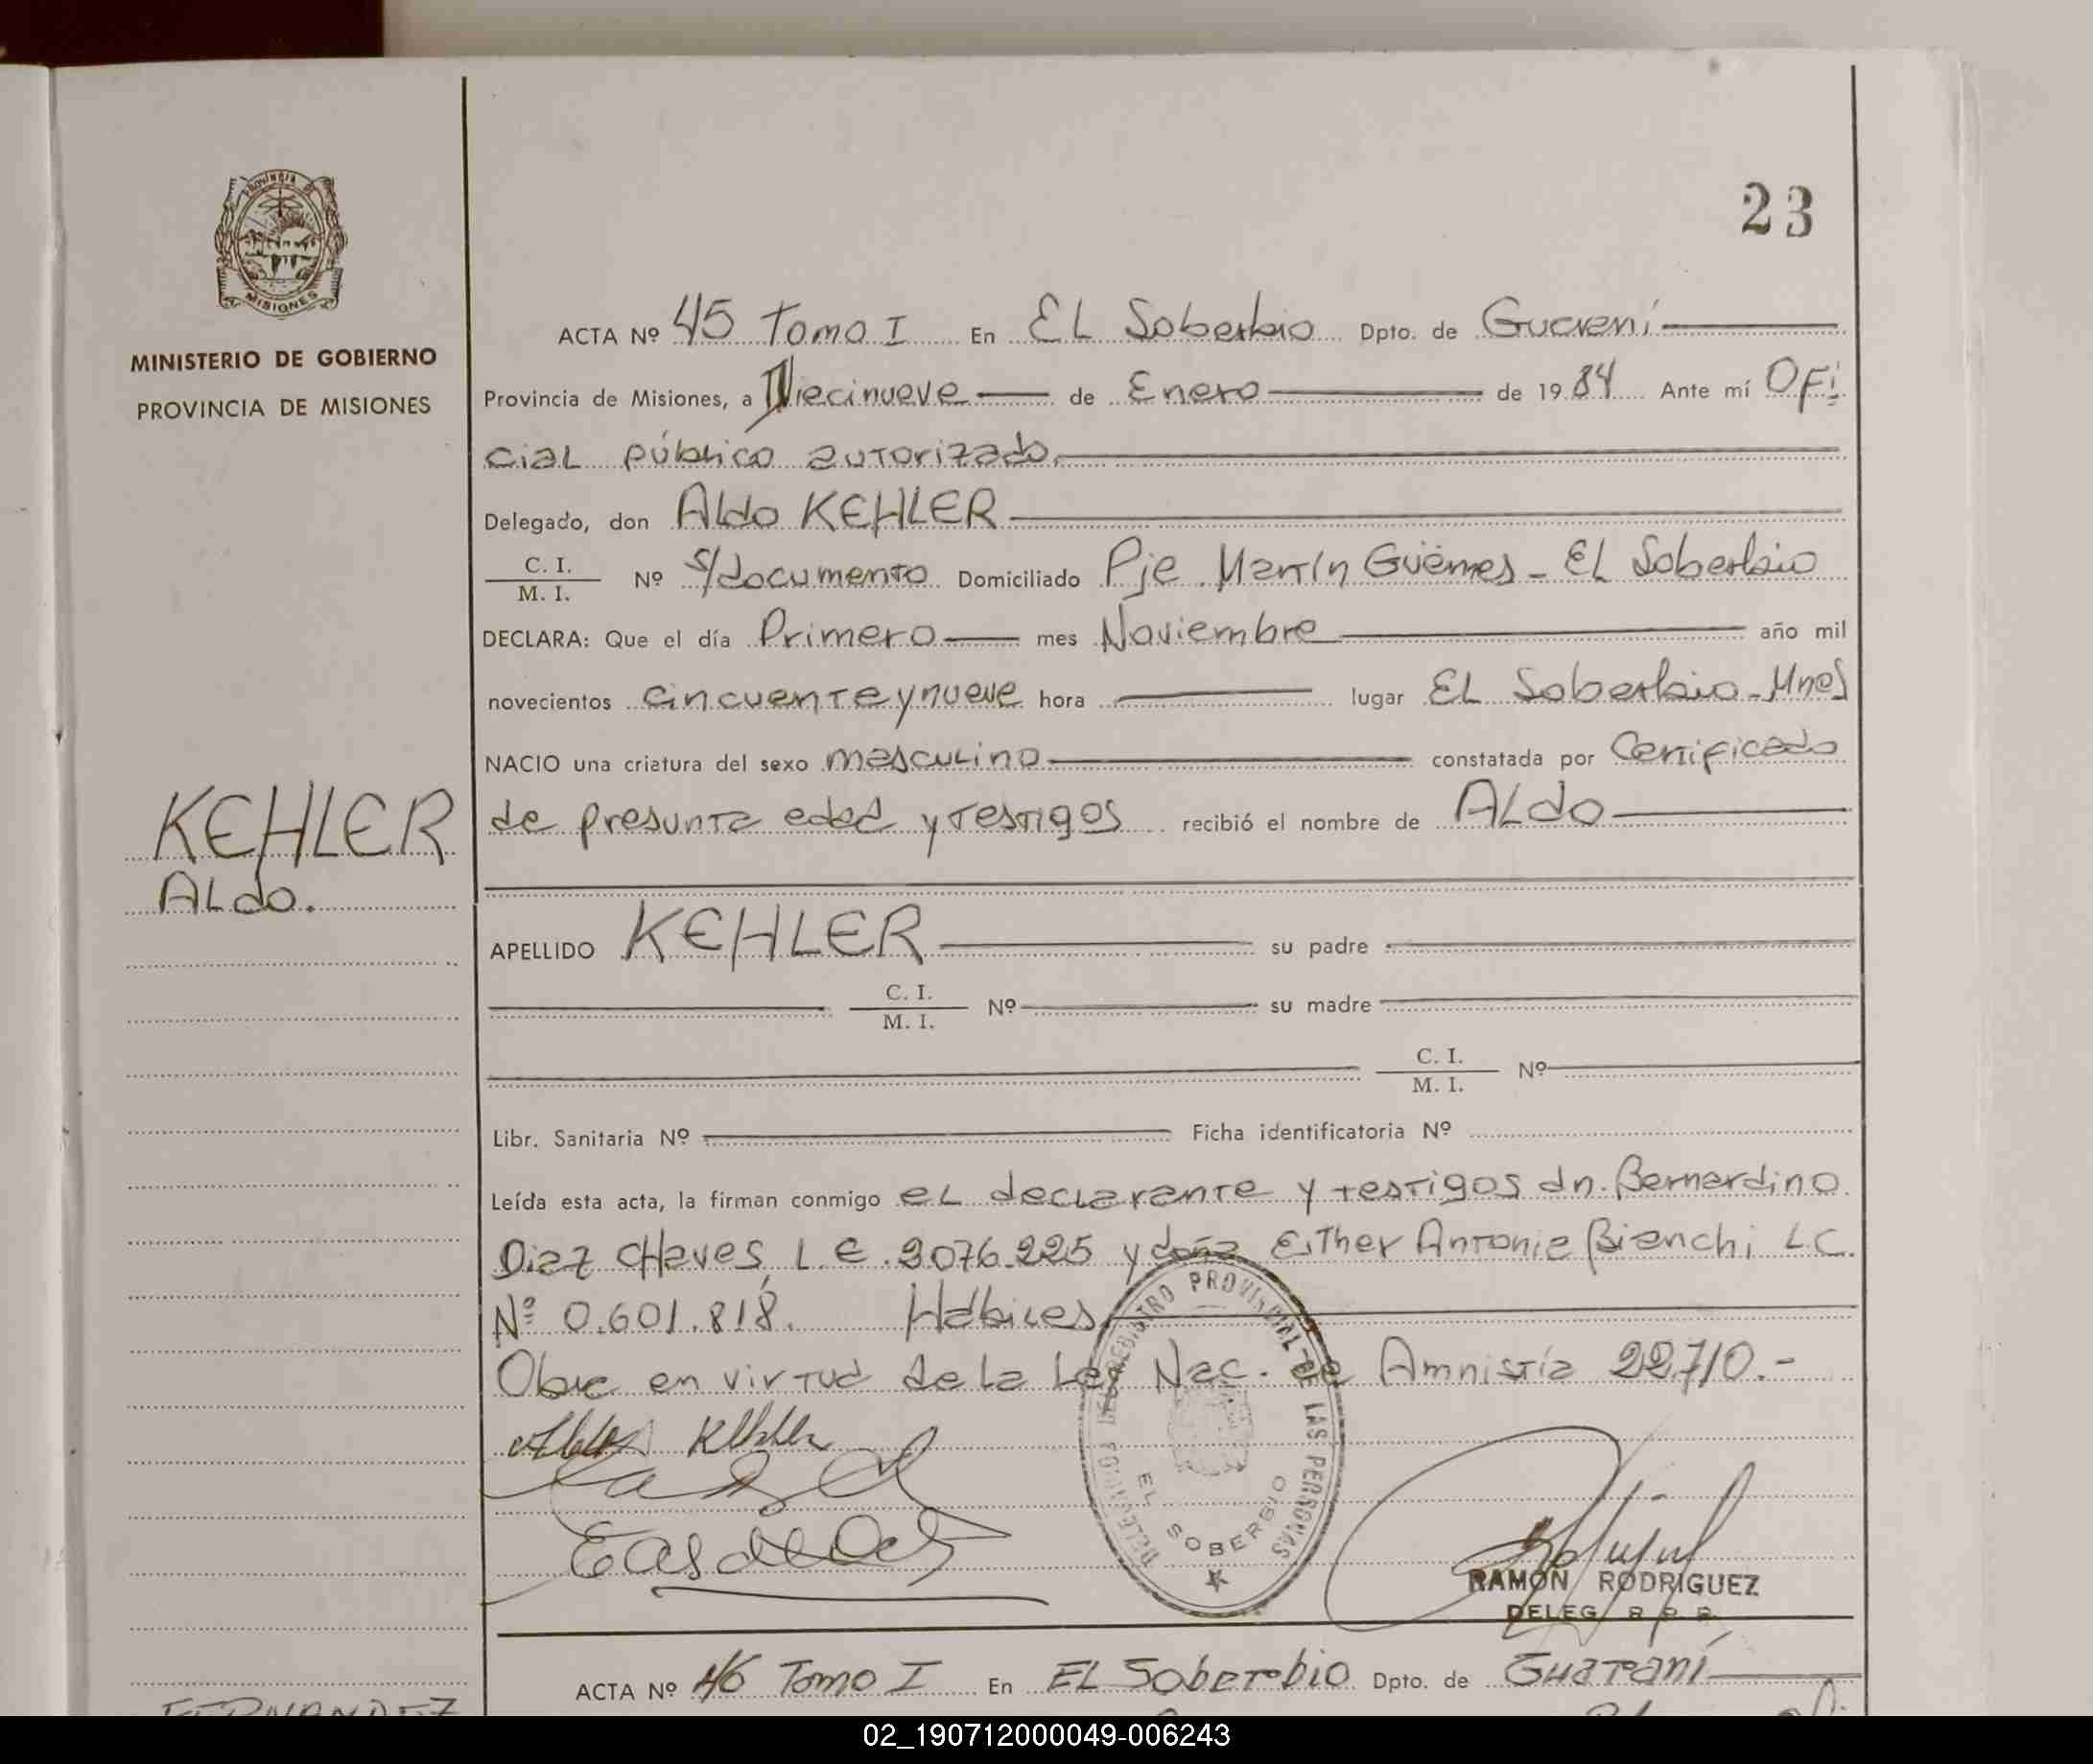 23
PROVINCIA DE
MISIONES
MINISTERIO DE GOBIERNO
PROVINCIA DE MISIONES
KEHLER
ALdo.
ACTA Nº 45 Tomo I En EL Soberbio Dpto. de Guaraní
Provincia de Misiones, a Diecinueve de Enero de 1984 Ante mí OFi
cial público autorizado.
Delegado, don Aldo KEHLER
C. I.
M. I. Nº s/documento Domiciliado Pje Martín Güemes - EL Soberbio
DECLARA: Que el día Primero mes Noviembre año mil
novecientos cincuenta y nueve hora lugar EL Soberbio - Mnes
NACIO una criatura del sexo masculino constatada por Certificado
de presunta edad y testigos recibió el nombre de ALdo
APELLIDO KEHLER su padre
C. I.
M. I. Nº su madre
C. I.
M. I. Nº
Libr. Sanitaria Nº Ficha identificatoria Nº
Leída esta acta, la firman conmigo eL declarante y testigos dn. Bernardino
Diaz CHaves, L.E. 9076.225 y doña EsTher Antonia Bianchi L.C.
Nº 0.601.818. Hábiles
Obre en virtud de la Ley Nac. de Amnistía 22710.-
Aldo Kehler
REGISTRO PROVINCIAL DE LAS PERSONAS
EL SOBERBIO
RAMON RODRIGUEZ
DELEG. R P P
ACTA Nº 46 Tomo I En EL Soberbio Dpto. de Guaraní
FERNANDEZ
02_190712000049-006243